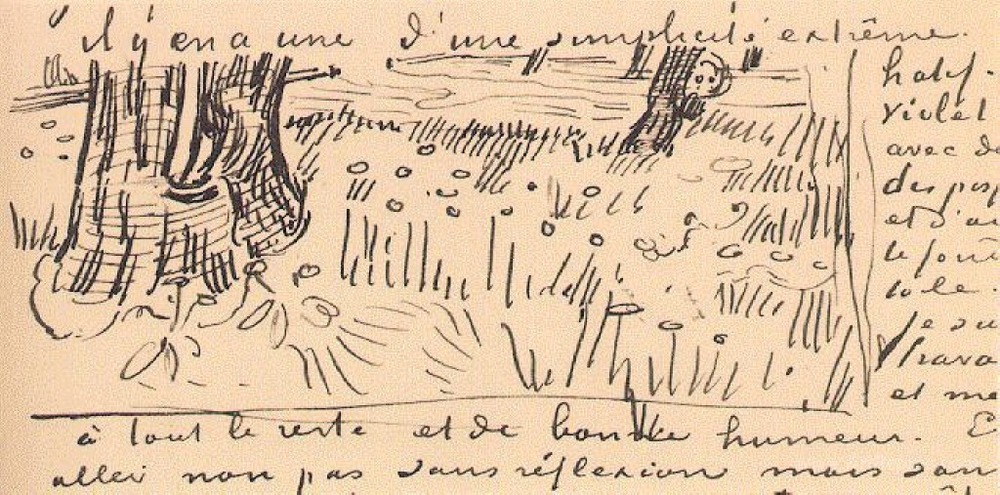 il y en a une d'une simplicité extrême.
half-
violet
avec de
des
et d'au
le fond
toile.
Je su
Trava
et me
à tout le reste et de bonne humeur. E
aller non pas sans réflexion mais san